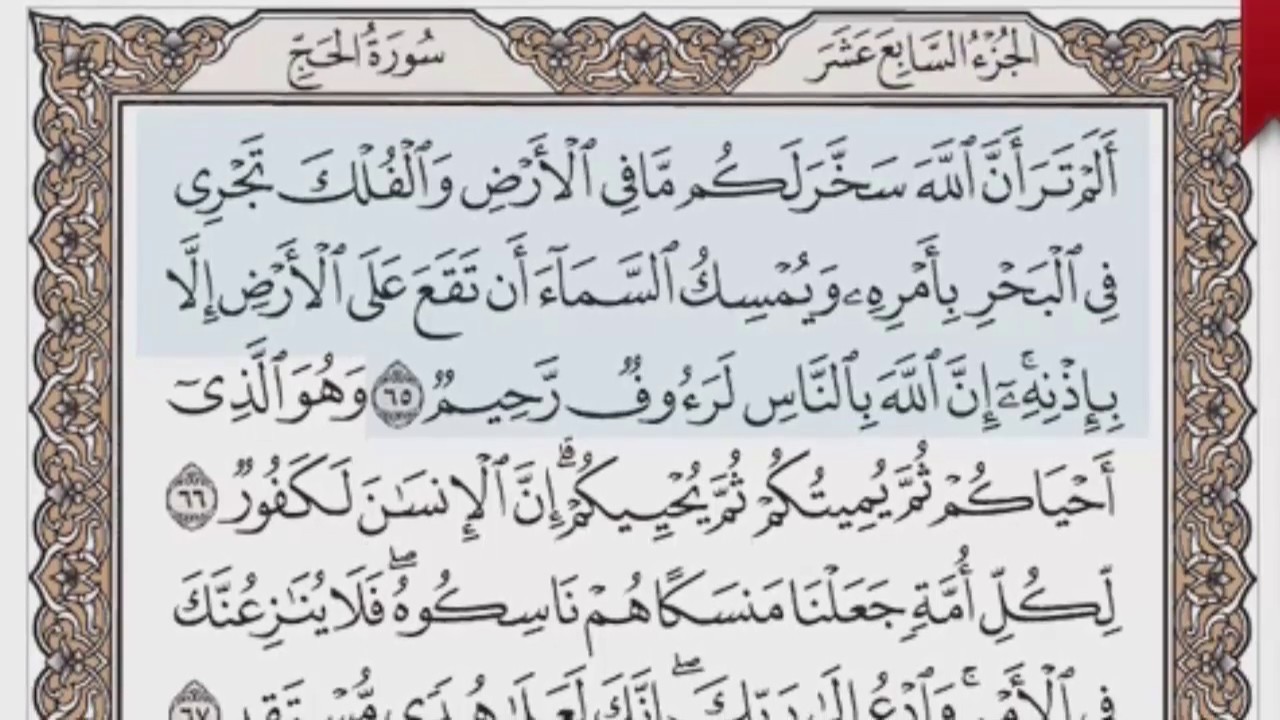 الجُزْءُ السَّابِعَ عَشَرَ
سُورَةُ الحَجِّ
أَلَمْ تَرَ أَنَّ ٱللَّهَ سَخَّرَ لَكُم مَّا فِي ٱلْأَرْضِ وَٱلْفُلْكَ تَجْرِي
فِي ٱلْبَحْرِ بِأَمْرِهِۦ وَيُمْسِكُ ٱلسَّمَآءَ أَن تَقَعَ عَلَى ٱلْأَرْضِ إِلَّا
بِإِذْنِهِۦٓۚ إِنَّ ٱللَّهَ بِٱلنَّاسِ لَرَءُوفٌ رَّحِيمٌ ٦٥ وَهُوَ ٱلَّذِيٓ
أَحْيَاكُمْ ثُمَّ يُمِيتُكُمْ ثُمَّ يُحْيِيكُمْۗ إِنَّ ٱلْإِنسَٰنَ لَكَفُورٌ ٦٦
لِّكُلِّ أُمَّةٍ جَعَلْنَا مَنسَكًا هُمْ نَاسِكُوهُۖ فَلَا يُنَٰزِعُنَّكَ
فِي ٱلْأَمْرِۚ وَٱدْعُ إِلَىٰ رَبِّكَۖ إِنَّكَ لَعَلَىٰ هُدًى مُّسْتَقِيمٍ ٦٧